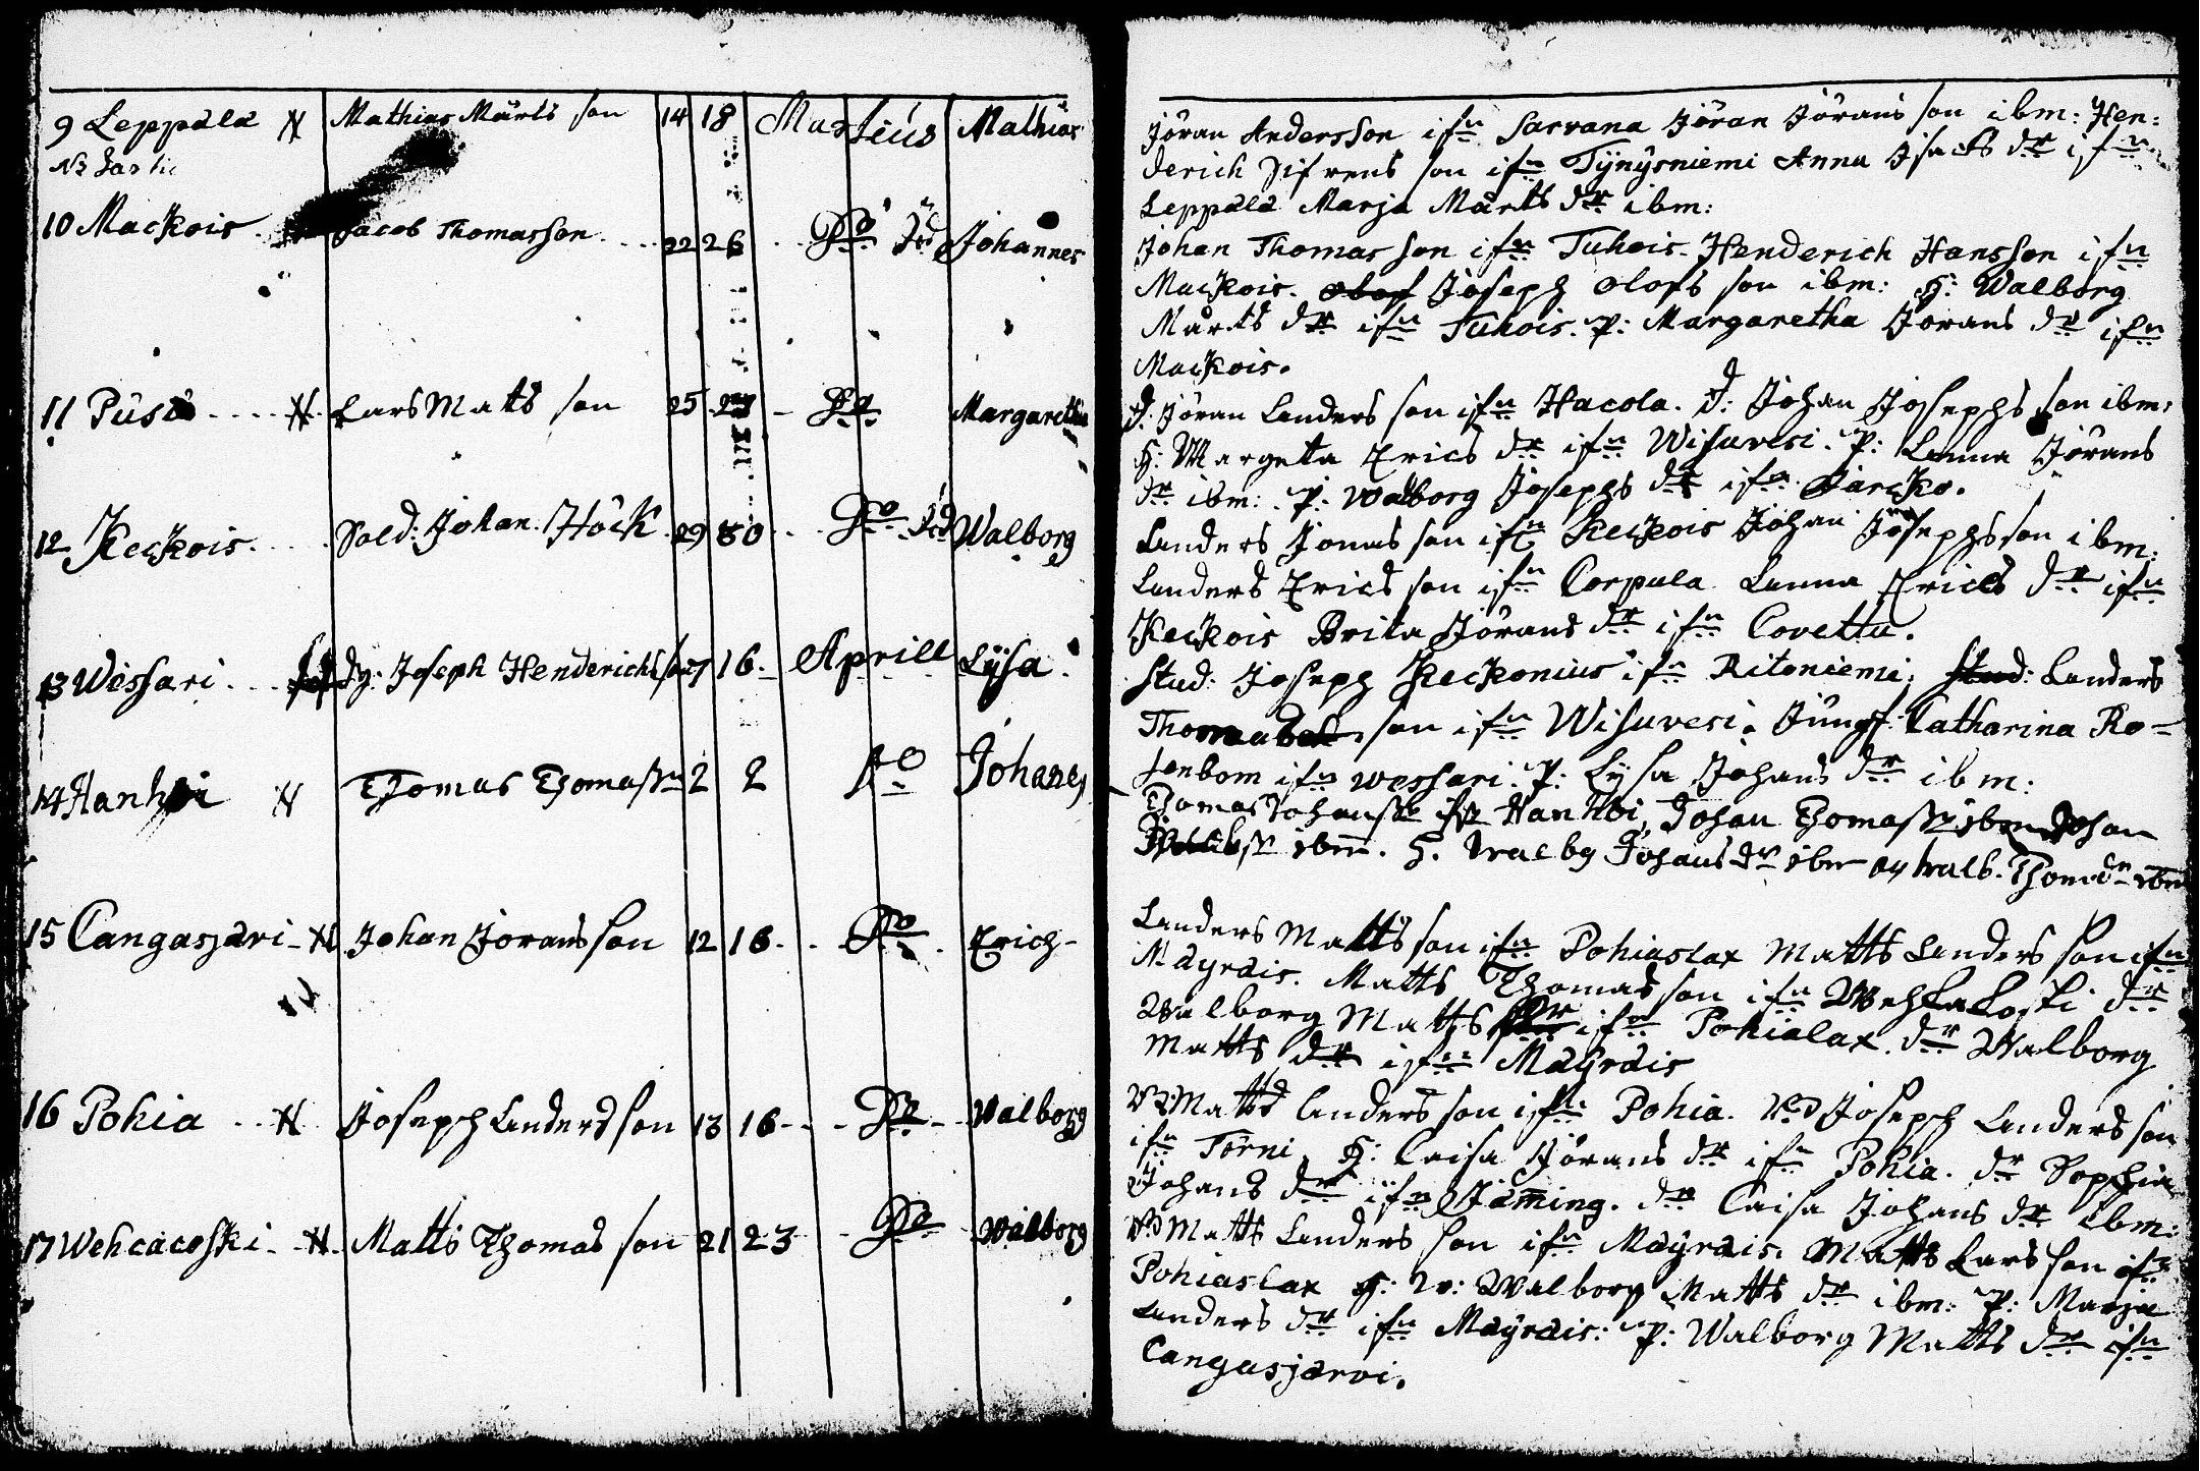 9 Leppälä N Mathias Märts son 14 18 Martius Mathias
10 Mackois. Jacob Thomasson 22 26 Do Johannes
11 Pusa N Lars Mats son 25 Do Margaretha
12 Keckois. Sold: Johan Höck 29 30 Do Walborg
13 Wessari Joseph Henderichs son 16 Aprill Lÿsa
14 Hanhoi N Thomas Thomasson 2 2 Do Johanes
15 Cangasjärvi N Johan Jörans son 12 16 Do Erich
16 Pohia N Joseph Anders son 13 16 Do Walborg
17 Wehcacoski N Matts Thomas son 21 23 Do Walborg
Jöran Andersson ifn Sarvana Jöran Jörans son ibm: Hen:
derich Sifrens son ifn Tÿnÿsniemi Anna Isacs dr ifn
Leppälä Marja Märts dr ibm:
Johan Thomas son ifn Tuhois Henderich Hansson ifn
Mackois. Olof Joseph Olofs son ibm: H: Walborg
Märts dr ifn Tuhois. P: Margaretha Jörans dr ifn
Mackois.
d. Jöran Anders son ifn Hacola. d: Johan Josephs son ibm:
H: Margeta Erics dr ifn Wisuvesi. P: Anna Jörans
dr ibm: P: Walborg Josephs dr ifn
Anders Jonas son ifn Keckois Johan Josephsson ibm:
Anders Erics son ifn Corpula Anna Erics dr ifn
Keckois Brita Jörans dr ifn Covettu.
Stud: Joseph Keckonius ifn Ritoniemi; Stud: Anders
Thomas son ifn Wisuvesi. Jungf: Catharina Ro-
senbom ifn Wessari. P: Lÿsa Johans dr ibm:
Thomas Johansson ifn Hanhoi, Johan Thomasson ibm Johan
ibm. H. Walbg Johans dr ibm Walb. Thom: dr ibm
Anders Matts son ifn Pohiaslax Matts Anders son ifn
Mäyräis. Matts Thomas son ifn Wehkakoski dr
Walborg Matts dr ifn Pohialax. dr Walborg
Matts dr ifn Mäÿräis
Matts Anders son ifn Pohia. Joseph Anders son
ifn Törni. H: Caisa Jörans dr ifn Pohia. dr Sophia
Johans dr ifn Jäming. dr Caisa Johans dr ibm:
Matts Anders son ifn Mäÿräis Matts Lars son ifn
Pohiaslax H: Walborg Matts dr ibm: P: Marja
Anders dr ifn Mäÿräis: P: Walborg Matts dr ifn
Cangasjärvi.